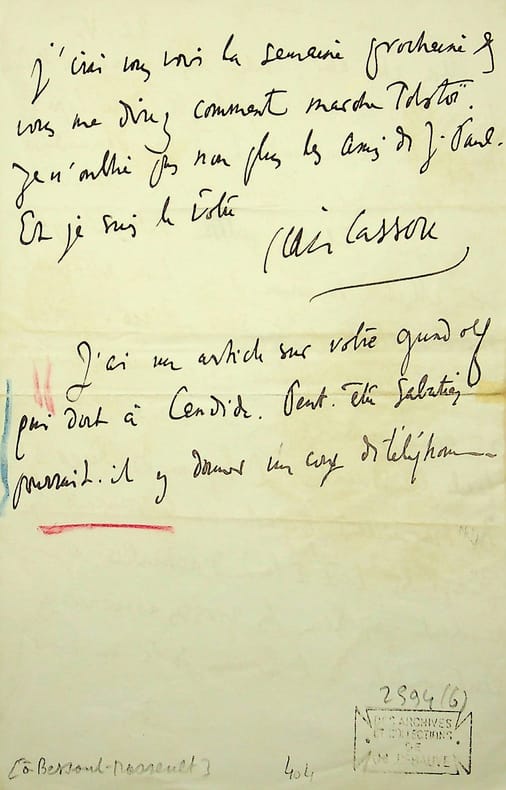 J'irai vous voir la semaine prochaine &
vous me direz comment marche Tolstoï.
Je n'oublie pas non plus les Amis de J. Paul.
Et je suis le vôtre
Jean Cassou
J'ai un article sur votre Gundolf
qui dort à Candide. Peut-être Sabatier
pourrait-il y donner un coup de téléphone
2994(6)
DES ARCHIVES
ET COLLECTIONS
DE
[à Bessand-Massenet]
404